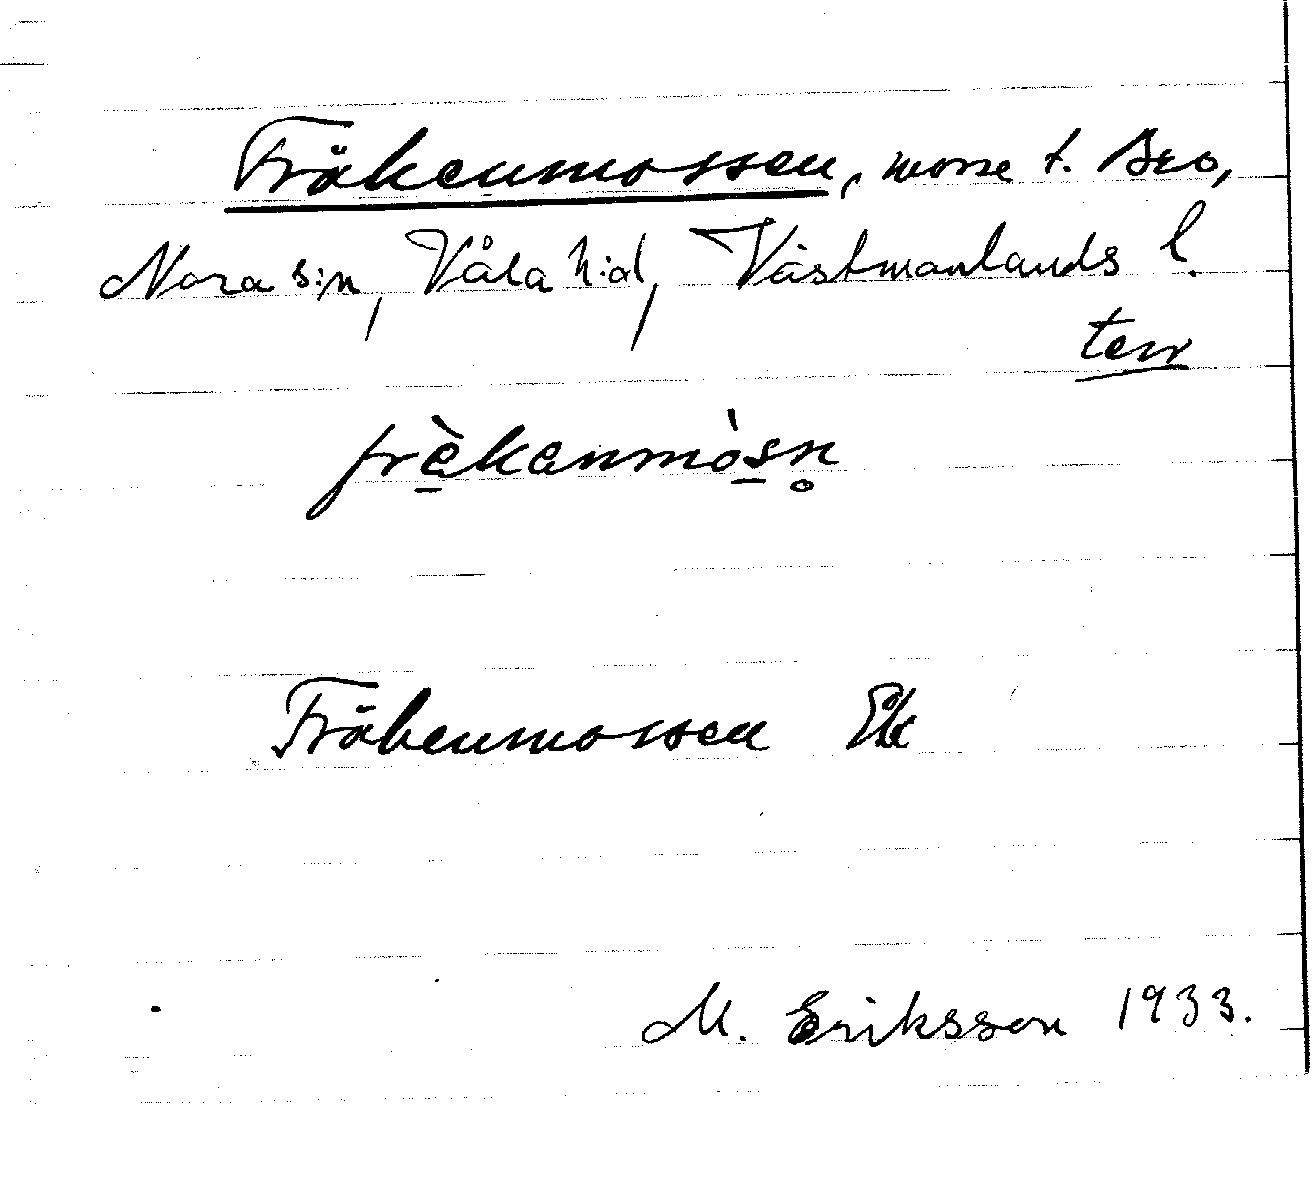 Fräkenmossen, mosse t. Bro,
Nora s:n, Våla h:d, Västmanlands l.
terr
frè̱kanmò̱sn̥
Fräkenmossen Ek
M. Eriksson 1933.